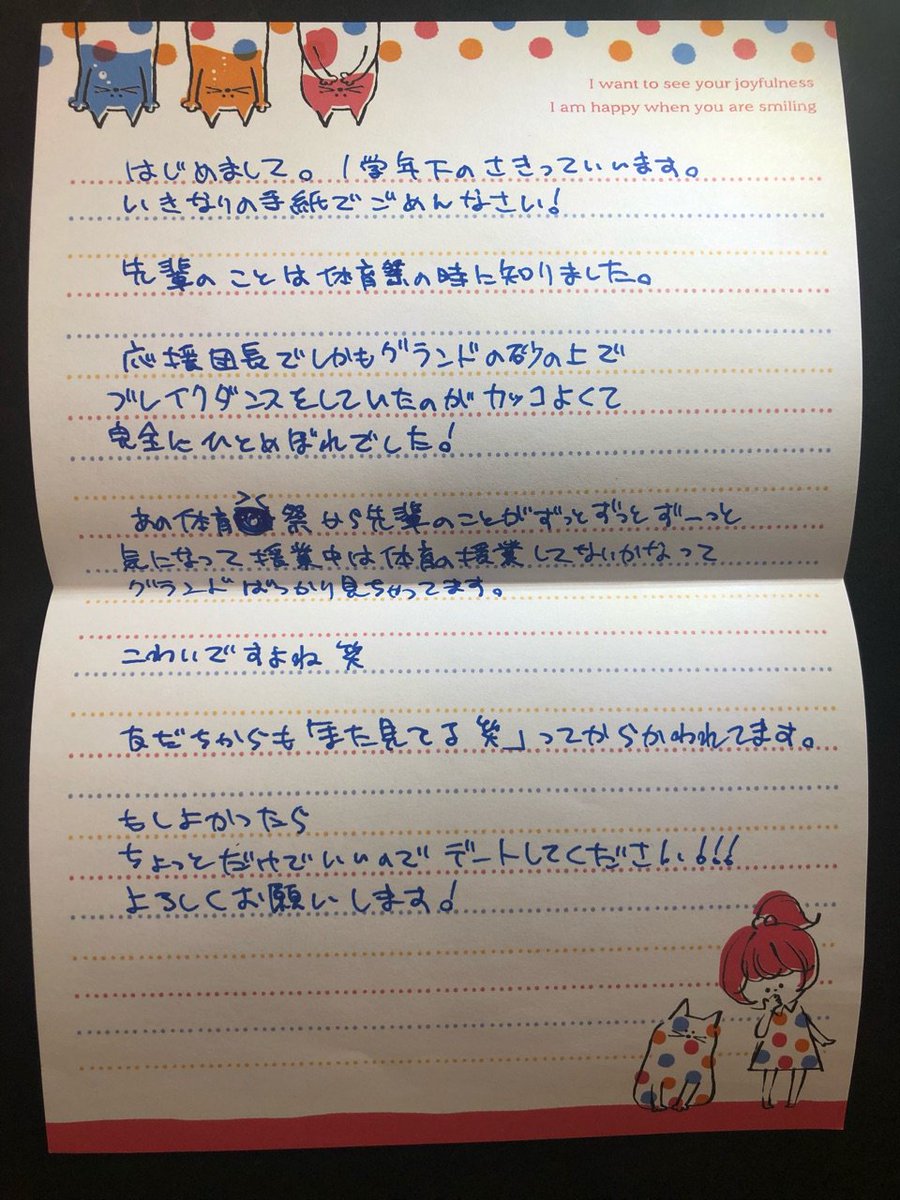 I want to see your joyfulness
I am happy when you are smiling
はじめまして。1学年下のさきっていいます。
いきなりの手紙でごめんなさい!
先輩のことは体育祭の時に知りました。
応援団長でしかもグランドの砂の上で
ブレイクダンスをしていたのがカッコよくて
完全にひとめぼれでした!
あの体育祭から先輩のことがずっとずっとずーっと
気になって援業中は体育の援業してないかなって
グランドばっかり見ちゃってます。
こわいですよね笑
友だちからも「また見てる笑」ってからかわれてます。
もしよかったら
ちょっとだけでいいのでデートしてください!!!
よろしくお願いします!